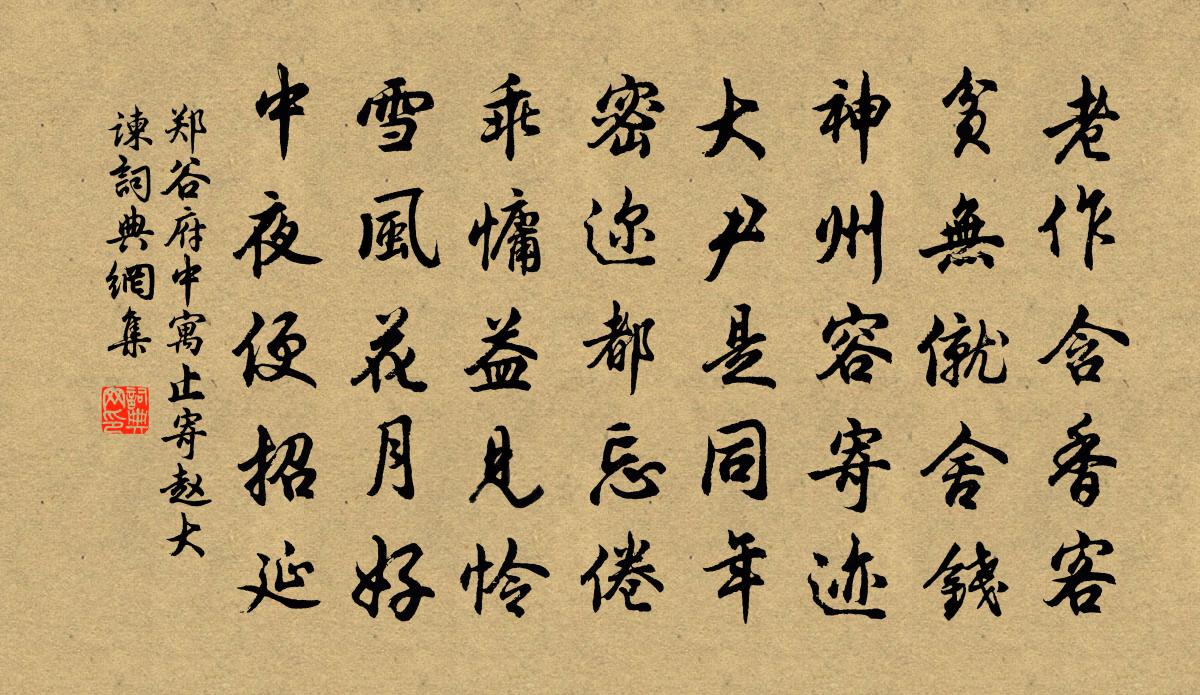 老作含香客
貧無僦舍錢
神州容寄迹
大尹是同年
密迩都忘倦
乖慵益見怜
雪風花月好
中夜便招延
郑谷府中寓止寄赵大
諫詞典網集
詞典
网印